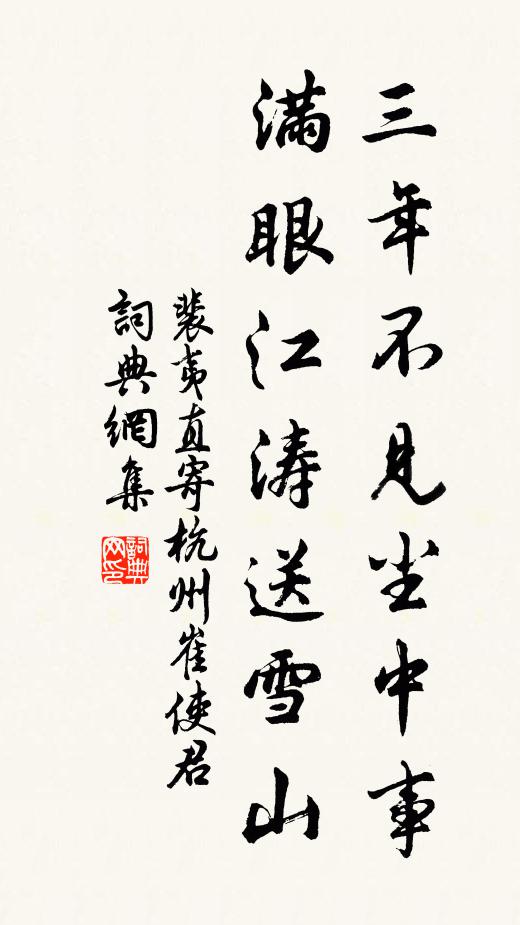 三年不見尘中事
滿眼江涛送雪山
裴夷直寄杭州崔使君
詞典網集
詞典网印